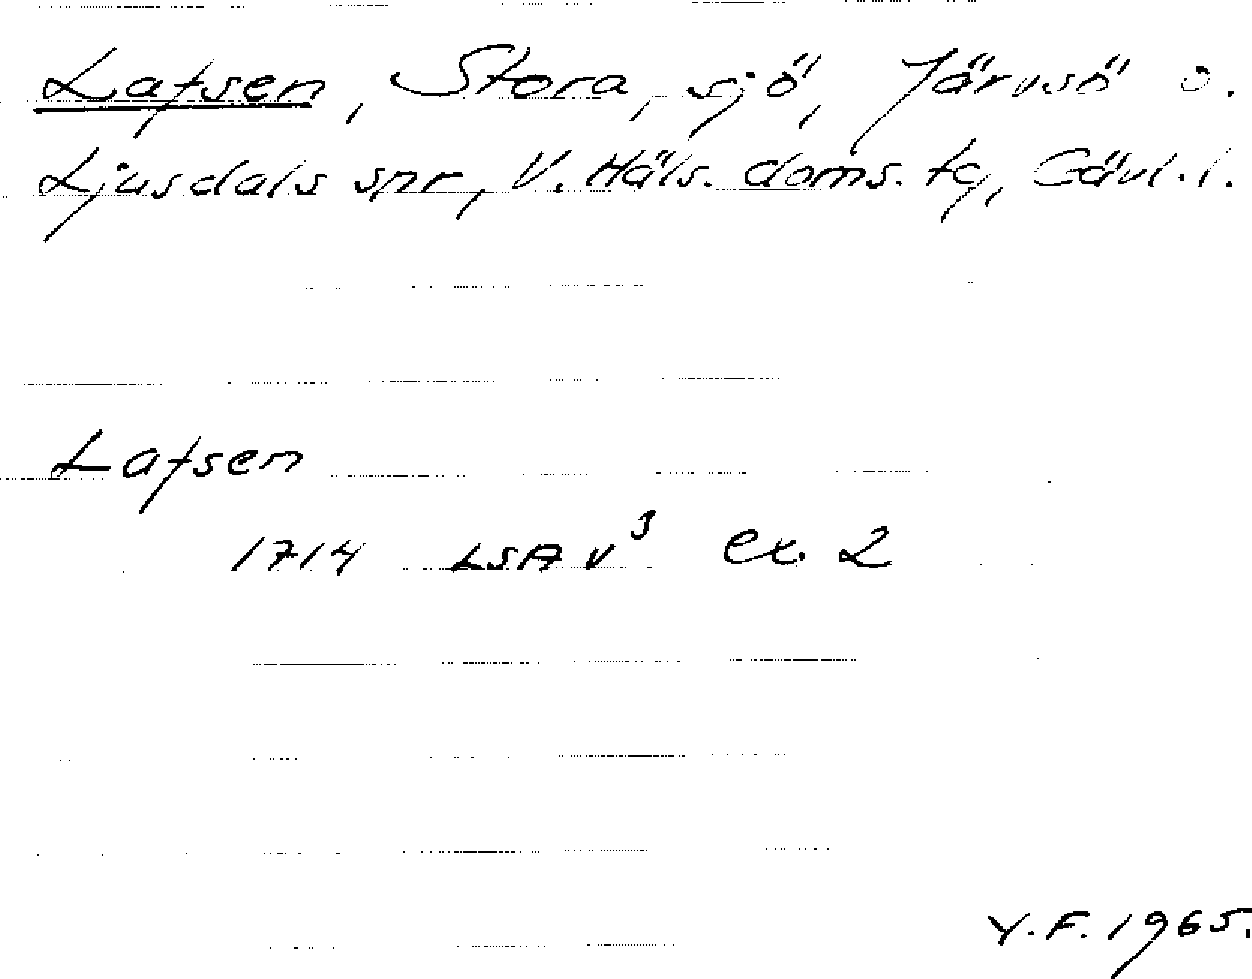 Lafsen, Stora, sjö, Järvsö o.
Ljusdals spr, V. Häls. doms. tg, Gävl. l.
Lafsen
1714 LSA V³ ex. 2
Y.F. 1965.